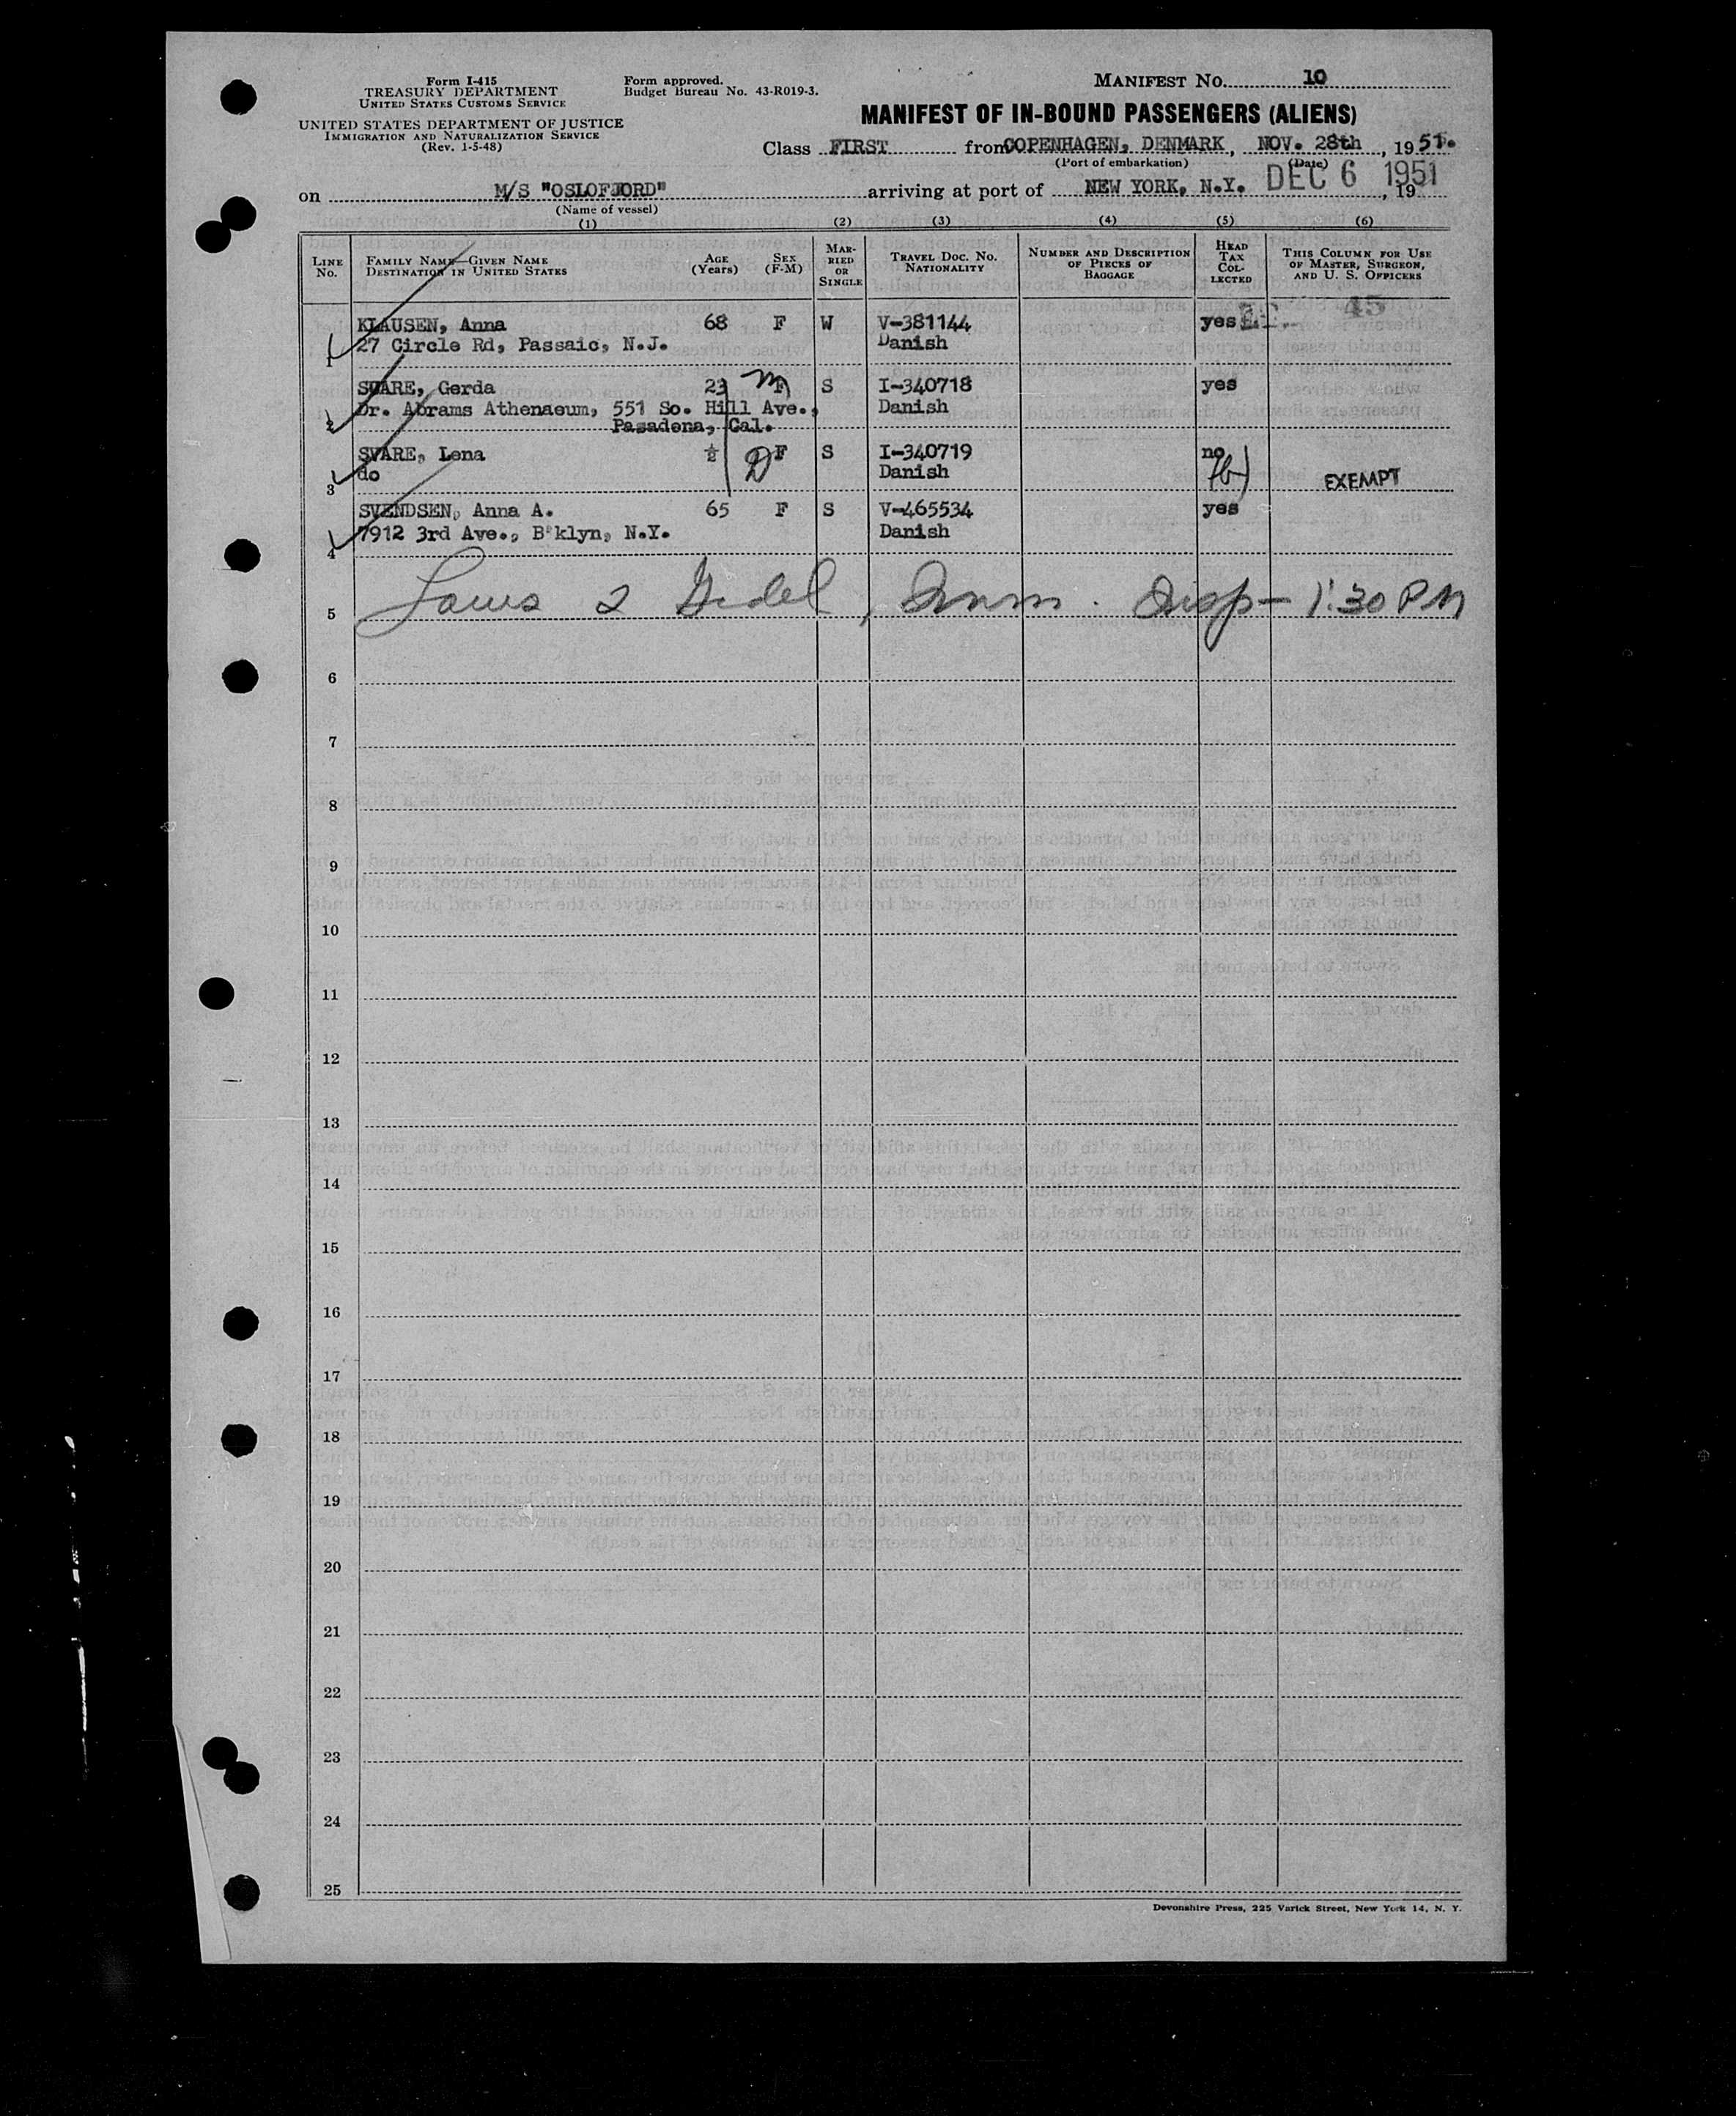 Form I-415
TREASURY DEPARTMENT
UNITED STATES CUSTOMS SERVICE
UNITED STATES DEPARTMENT OF JUSTICE
IMMIGRATION AND NATURALIZATION SERVICE
(Rev. 1-5-48)
Form approved.
Budget Bureau No. 43-R019-3.
MANIFEST NO. 10
MANIFEST OF IN-BOUND PASSENGERS (ALIENS)
Class FIRST from COPENHAGEN, DENMARK, NOV. 28th, 1951.
(Port of embarkation) (Date)
on M/S "OSLOFJORD" arriving at port of NEW YORK, N.Y. DEC 6 1951, 19
(Name of vessel)
(1) (2) (3) (4) (5) (6)
LINE NO.
FAMILY NAME—GIVEN NAME
DESTINATION IN UNITED STATES
AGE (Years)
SEX (F-M)
MARRIED OR SINGLE
TRAVEL DOC. NO.
NATIONALITY
NUMBER AND DESCRIPTION OF PIECES OF BAGGAGE
HEAD TAX COLLECTED
THIS COLUMN FOR USE OF MASTER, SURGEON, AND U. S. OFFICERS
45
KLAUSEN, Anna 68 F W V-381144 yes
1 27 Circle Rd, Passaic, N.J. Danish
SVARE, Gerda 23 F M S I-340718 yes
2 Dr. Abrams Athenaeum, 551 So. Hill Ave., Danish
Pasadena, Cal.
SVARE, Lena ½ D F S I-340719 no
3 do Danish EXEMPT
SVENDSEN, Anna A. 65 F S V-465534 yes
4 7912 3rd Ave., B'klyn, N.Y. Danish
5 Imm. Insp- 1:30 PM
6
7
8
9
10
11
12
13
14
15
16
17
18
19
20
21
22
23
24
25
Devonshire Press, 225 Varick Street, New York 14, N. Y.